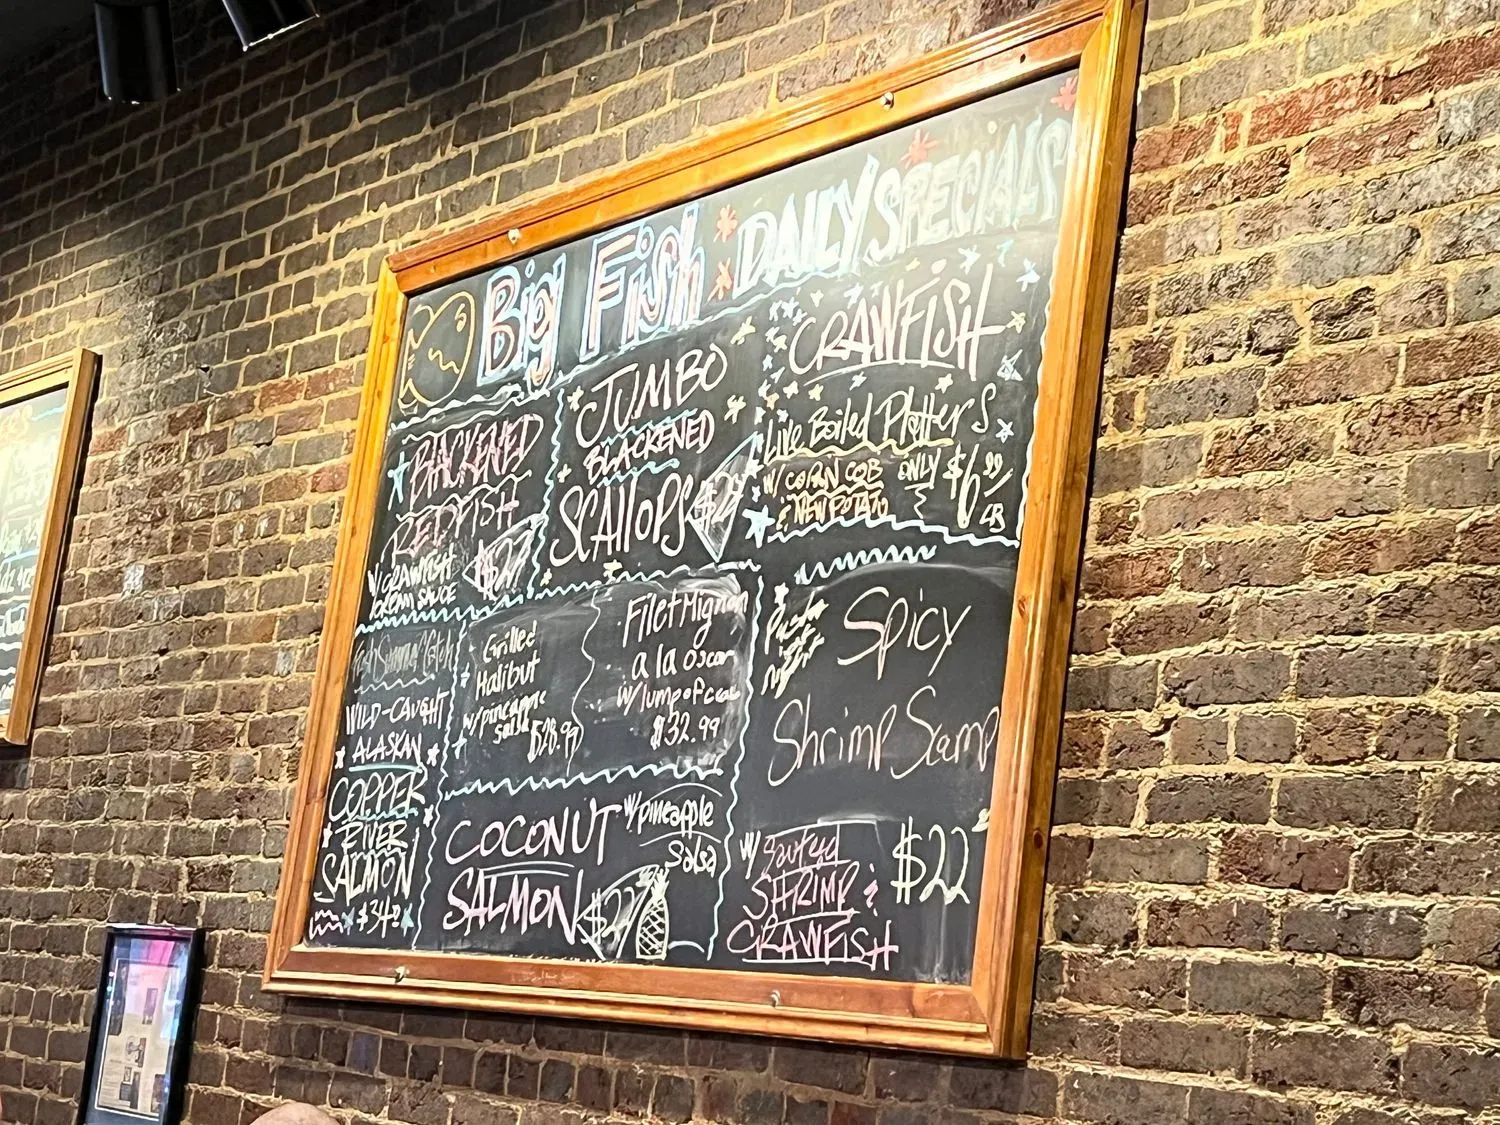 Big Fish DAILY SPECIALS
BLACKENED
REDFISH
W/ CRAWFISH
CREAM SAUCE
$27
JUMBO
BLACKENED
SCALLOPS
CRAWFISH
LIVE Boiled PlatterS
W/ CORN COB
& NEW POTATO
ONLY $6.99
LB
WILD-CAUGHT
ALASKAN
COPPER
RIVER
SALMON
$34
Grilled
Halibut
w/pineapple
salsa $28.99
Filet Mignon
a la oscar
w/lump of crab
$32.99
COCONUT
SALMON
w/pineapple
Salsa
$27
Pasta
Spicy
Shrimp Scamp
w/ Sauteed
SHRIMP &
CRAWFISH
$22